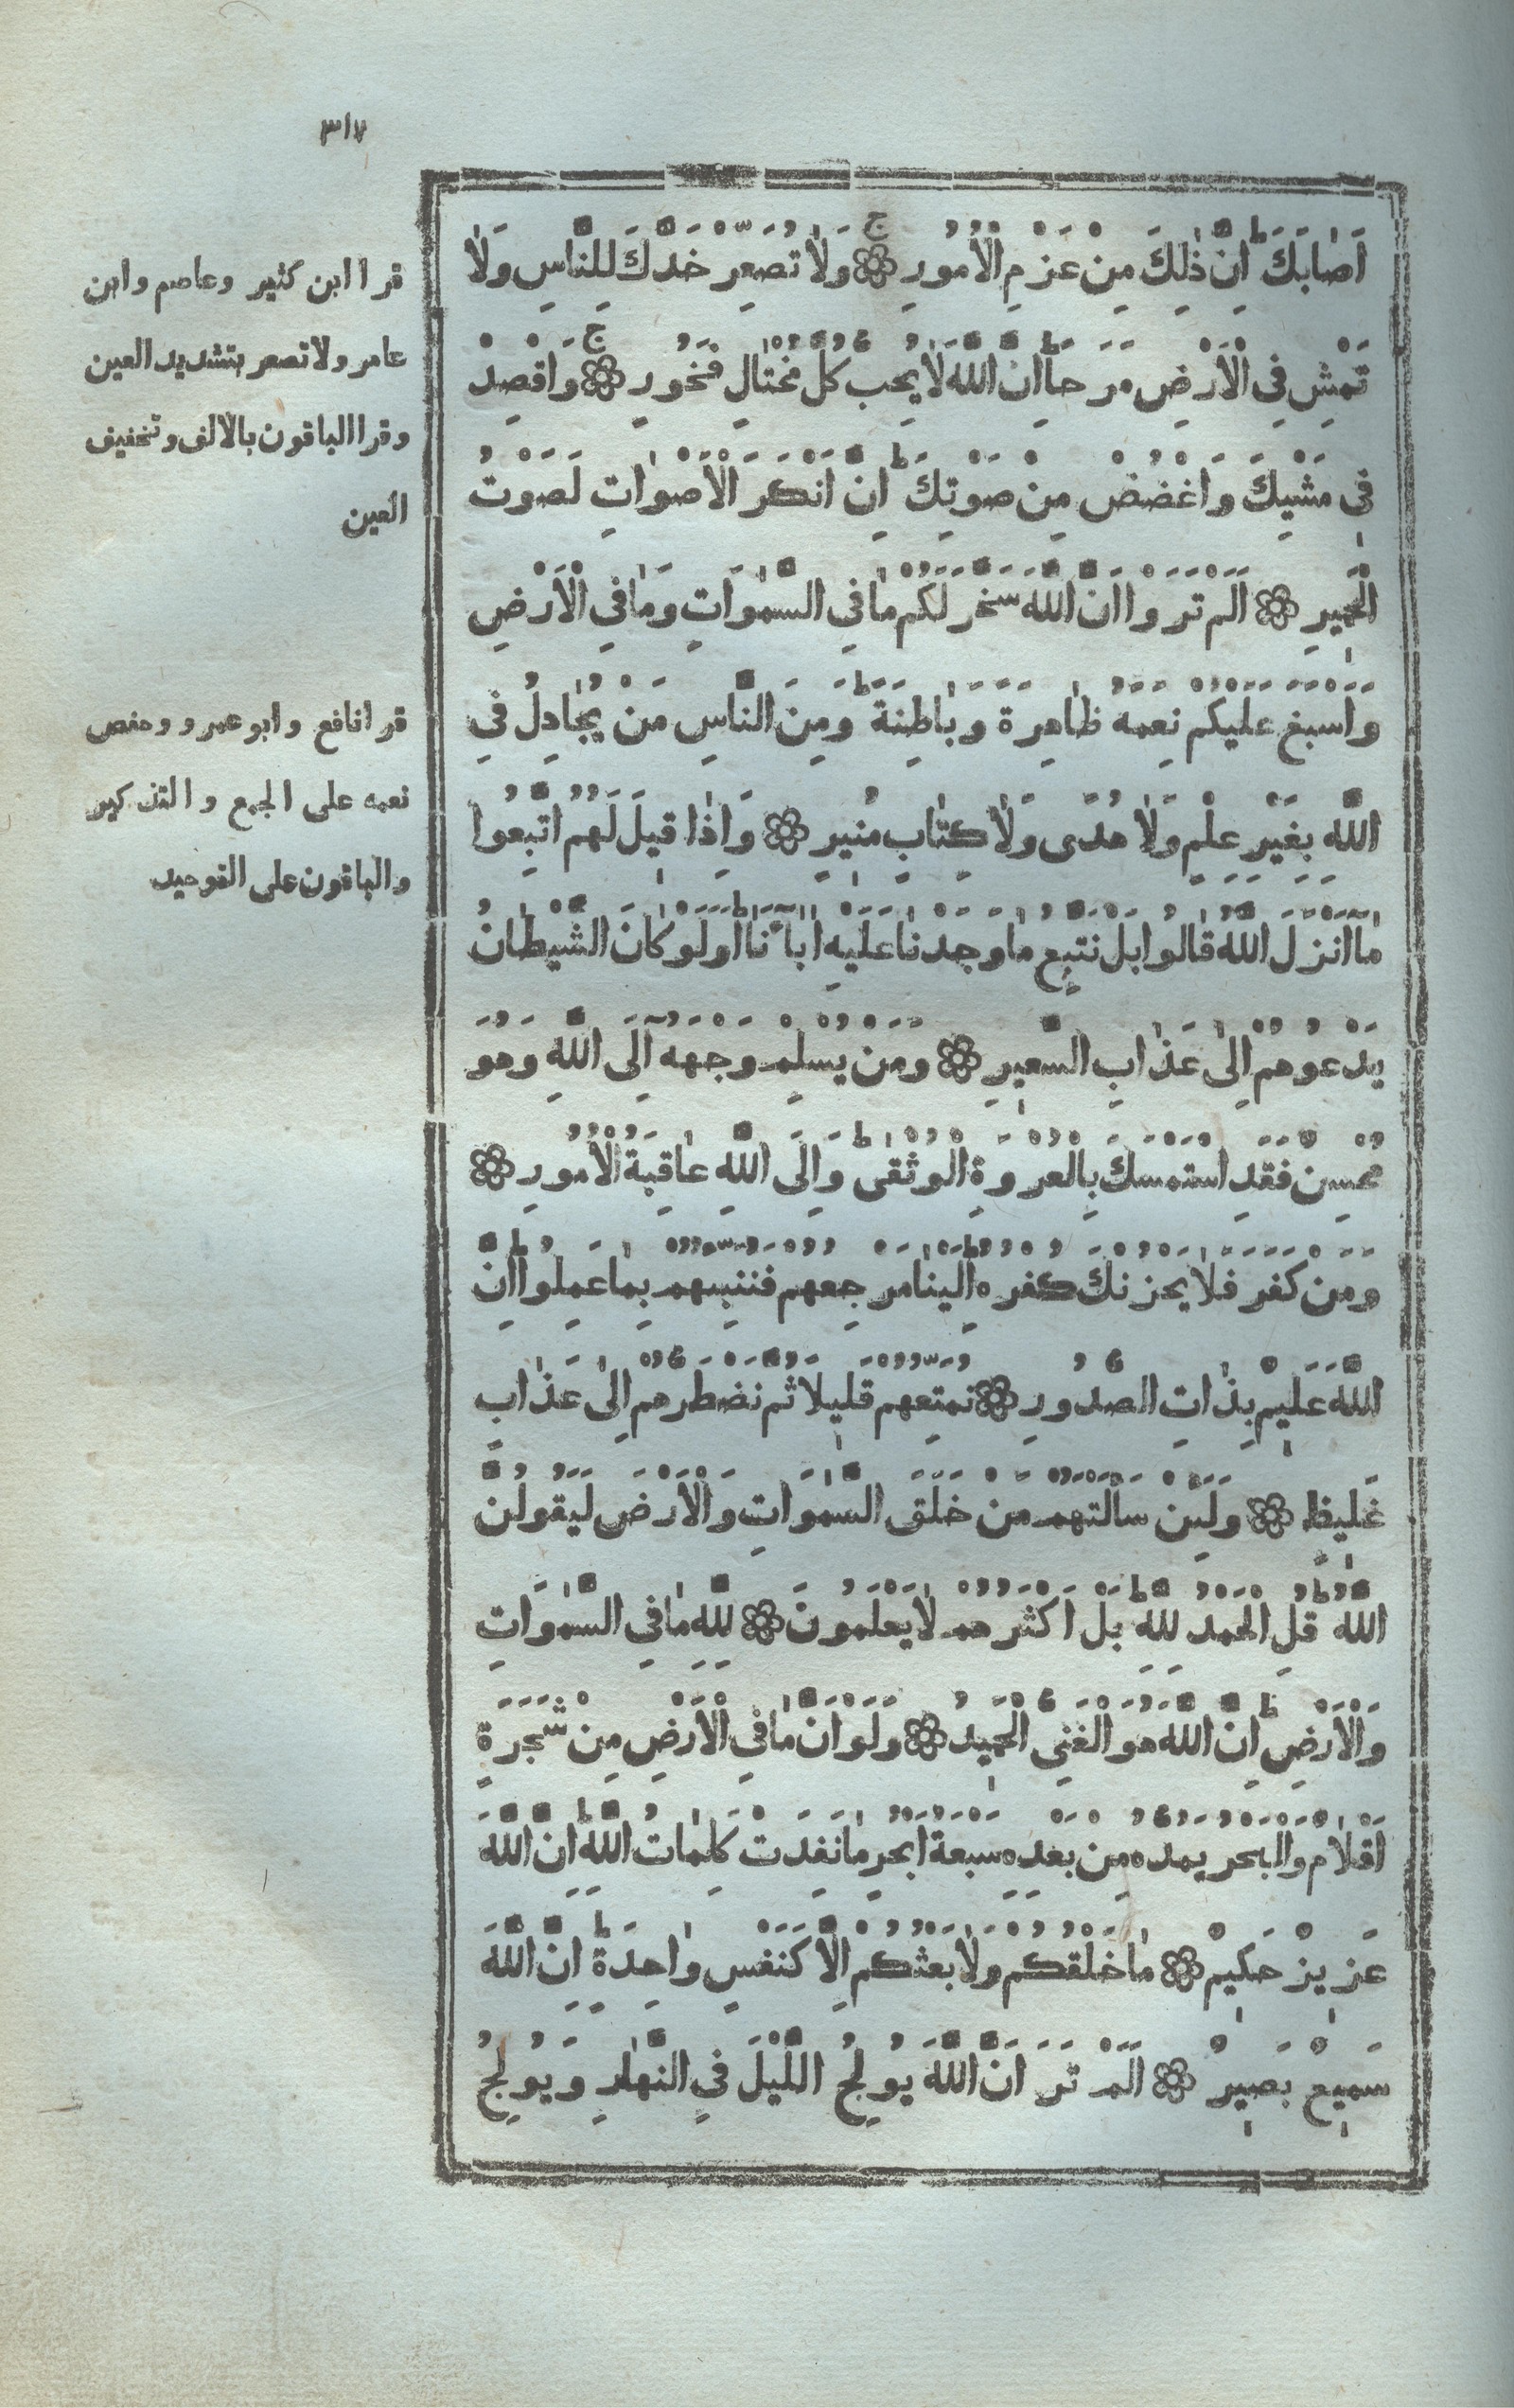 ٣١٧
اَصٰابَكَ ؕ اِنَّ ذٰلِكَ مِنْ عَزْمِ الْاُمُورِ ۞ ج وَلٰا تُصَعِّرْ خَدَّكَ لِلنّٰاسِ وَلٰا
تَمْشِ فِى الْاَرْضِ مَرَحًا ؕ اِنَّ اللّٰهَ لٰا يُحِبُّ كُلَّ مُخْتٰالٍ فَخُورٍ ۞ ج وَاقْصِدْ
فِى مَشْيِكَ وَاغْضُضْ مِنْ صَوْتِكَ ؕ اِنَّ اَنْكَرَ الْاَصْوٰاتِ لَصَوْتُ
الْحَمِيرِ ۞ اَلَمْ تَرَوْا اَنَّ اللّٰهَ سَخَّرَ لَكُمْ مٰا فِى السَّمٰوَاتِ وَمٰا فِى الْاَرْضِ
وَاَسْبَغَ عَلَيْكُمْ نِعَمَهُ ظٰاهِرَةً وَبٰاطِنَةً ؕ وَمِنَ النَّاسِ مَنْ يُجٰادِلُ فِى
اللّٰهِ بِغَيْرِ عِلْمٍ وَلٰا هُدًى وَلٰا كِتٰابٍ مُنِيرٍ ۞ وَاِذٰا قِيلَ لَهُمُ اتَّبِعُوا
مٰآ اَنْزَلَ اللّٰهُ قٰالُوا بَلْ نَتَّبِعُ مٰا وَجَدْنٰا عَلَيْهِ اٰبٰآءَنٰا ؕ اَوَلَوْ كٰانَ الشَّيْطٰانُ
يَدْعُوهُمْ اِلٰى عَذٰابِ السَّعِيرِ ۞ وَمَنْ يُسْلِمْ وَجْهَهُ آِلَى اللّٰهِ وَهُوَ
مُحْسِنٌ فَقَدِ اسْتَمْسَكَ بِالْعُرْوَةِ الْوُثْقٰى ؕ وَاِلَى اللّٰهِ عٰاقِبَةُ الْاُمُورِ ۞
وَمَنْ كَفَرَ فَلٰا يَحْزُنْكَ كُفْرُهُ ؕ اِلَيْنٰا مَرْجِعُهُمْ فَنُنَبِّئُهُمْ بِمٰا عَمِلُوا ؕ اِنَّ
اللّٰهَ عَلِيمٌ بِذٰاتِ الصُّدُورِ ۞ نُمَتِّعُهُمْ قَلِيلًا ثُمَّ نَضْطَرُّهُمْ اِلٰى عَذٰابٍ
غَلِيظٍ ۞ وَلَئِنْ سَاَلْتَهُمْ مَنْ خَلَقَ السَّمٰوَاتِ وَالْاَرْضَ لَيَقُولُنَّ
اللّٰهُ ؕ قُلِ الْحَمْدُ لِلّٰهِ ؕ بَلْ اَكْثَرُهُمْ لٰا يَعْلَمُونَ ۞ لِلّٰهِ مٰا فِى السَّمٰوَاتِ
وَالْاَرْضِ ؕ اِنَّ اللّٰهَ هُوَ الْغَنِىُّ الْحَمِيدُ ۞ وَلَوْ اَنَّ مٰا فِى الْاَرْضِ مِنْ شَجَرَةٍ
اَقْلٰامٌ وَالْبَحْرُ يَمُدُّهُ مِنْ بَعْدِهِ سَبْعَةُ اَبْحُرٍ مٰا نَفِدَتْ كَلِمٰاتُ اللّٰهِ ؕ اِنَّ اللّٰهَ
عَزِيزٌ حَكِيمٌ ۞ مٰا خَلْقُكُمْ وَلٰا بَعْثُكُمْ اِلّٰا كَنَفْسٍ وٰاحِدَةٍ ؕ اِنَّ اللّٰهَ
سَمِيعٌ بَصِيرٌ ۞ اَلَمْ تَرَ اَنَّ اللّٰهَ يُولِجُ اللَّيْلَ فِى النَّهٰارِ وَيُولِجُ
قرا ابن كثير وعاصم وابن
عامر ولا تصعر بتشديد العين
وقرا الباقون بالالف وتخفيف
العين
قرا نافع وابو عمرو وحفص
نعمه على الجمع والتذكير
والباقون على التوحيد